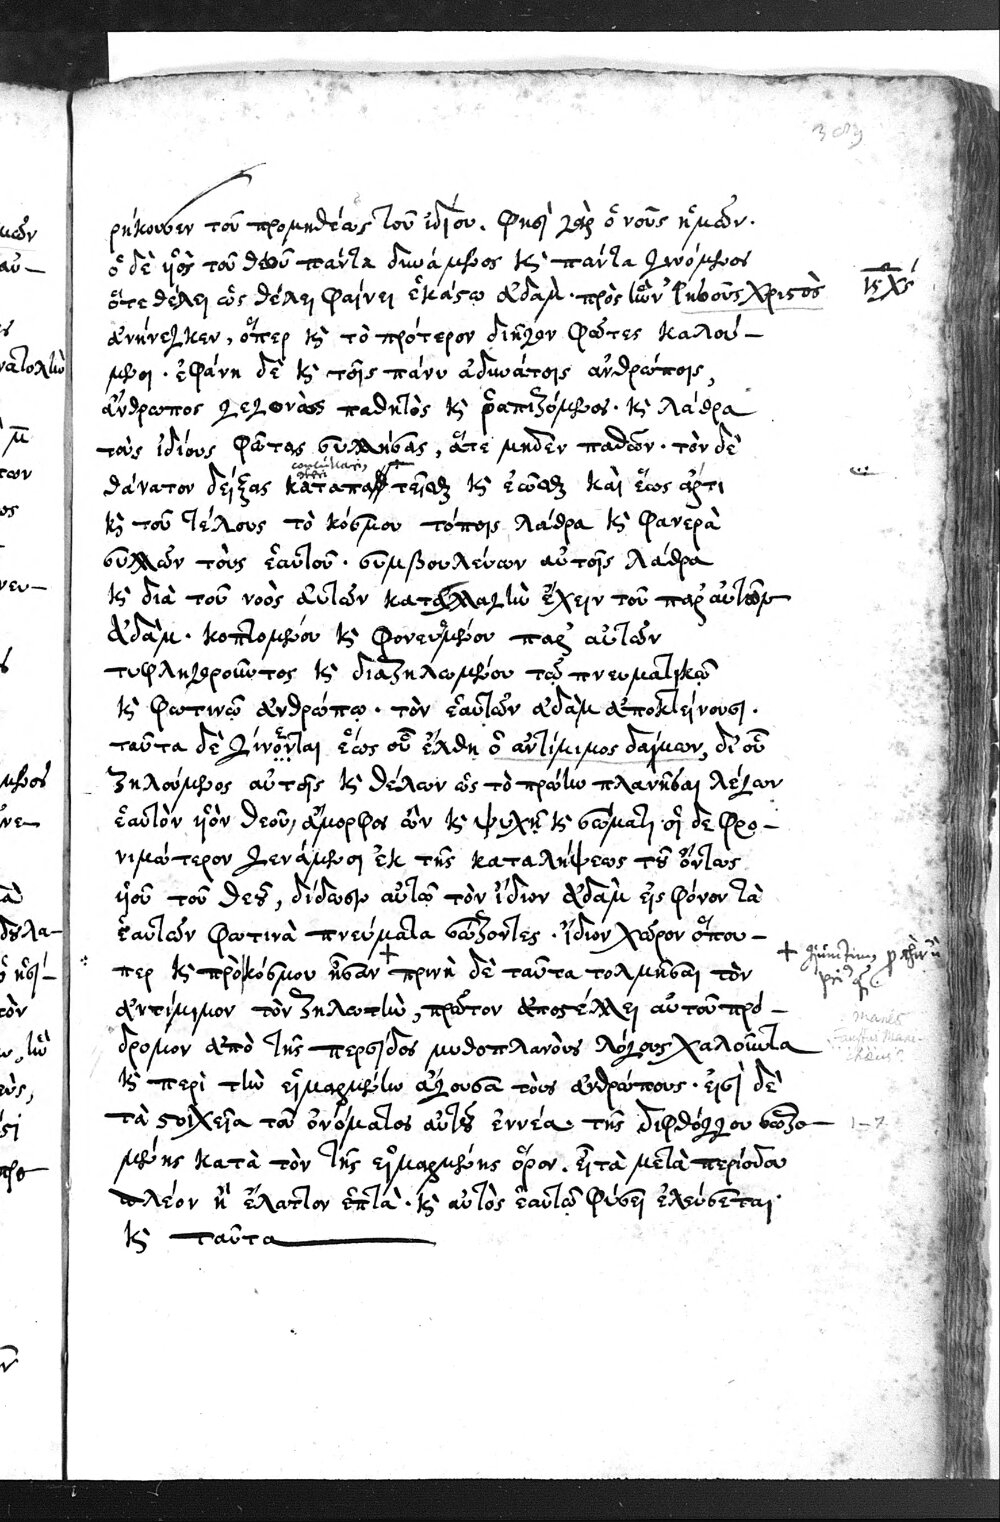 ρήκουσεν τοῦ προμηθέως τοῦ ἰδίου. φησὶ γὰρ ὁ νοῦς ἡμῶν·
ὁ δὲ υἱὸς τοῦ θεοῦ πάντα δυνάμενος κ̀ πάντα γινόμενος
ὅτε θέλει ὡς θέλει φαίνει ἑκάστῳ ἀδὰμ· πρὸς ὧν ἰησοῦς χριστὸς
ις χς
ἀνήνεγκεν, ὅπερ κ̀ τὸ πρότερον διῆγον φῶτες καλού–
μενοι. ἐφάνη δὲ κ̀ τοῖς πάνυ ἀδυνάτοις ἀνθρώποις,
ἄνθρωπος γεγονὼς παθητὸς κ̀ ῥαπιζόμενος· κ̀ λάθρα
τοὺς ἰδίους φῶτας συλλήσας, ἅτε μηδὲν παθὼν· τὸν δὲ
θάνατον δείξας καταπατεῖσθαι κ̀ ἐῶσθαι καὶ ἕως ἄρτι
κ̀ τοῦ τέλους τὸ κόσμου τόποις λάθρα κ̀ φανερὰ
συλλῶν τοὺς ἑαυτοῦ. συμβουλεύων αὐτοῖς λάθρα
κ̀ διὰ τοῦ νοὸς αὐτῶν καταλλαγὴν ἔχειν τοῦ παρ' αὐτῶν
ἀδὰμ. κοπτομένου κ̀ φονευομένου παρ' αὐτῶν
τυφληγοροῦντος κ̀ διαζηλωμένου τῷ πνευματικῷ
κ̀ φωτινῷ ἀνθρώπῳ. τὸν ἑαυτῶν ἀδὰμ ἀποκτείνουσι.
ταῦτα δὲ γίνονται ἕως οὗ ἔλθη ὁ ἀντίμιμος δαίμων, δι' οὗ
ζηλούμενος αὐτοῖς κ̀ θέλων ὡς τὸ πρώτω πλανῆσαι λέγων
ἑαυτὸν υἱὸν θεοῦ, ἄμορφος ὢν κ̀ ψυχῇ κ̀ σώματι. οἱ δὲ φρο–
νιμώτερον γενάμενοι ἐκ τῆς καταλήψεως τοῦ ὄντως
υἱοῦ τοῦ θεοῦ, δίδωσιν αὐτῷ τὸν ἴδιον ἀδὰμ εἰς φόνον τὰ
ἑαυτῶν φωτινὰ πνεύματα σώζοντες. ἴδιον χῶρον ὅπου–
περ κ̀ πρὸ κόσμου ἦσαν + πρινὴ δὲ ταῦτα τολμῆσαι τὸν
ἀντίμιμον τὸν ζηλωτὴν, πρῶτον ἀποστέλλει αὐτοῦ πρό–
δρομον ἀπὸ τῆς περσίδος μυθοπλάνους λόγους λαλοῦντα
κ̀ περὶ τὴν εἱμαρμένην ἄγουσα τοὺς ἀνθρώπους. εἰσὶ δὲ
τὰ στοιχεῖα τοῦ ὀνόματος αὐτοῦ ἐννέα. τῆς διφθόγγου σωζο–
μένης κατὰ τὸν τῆς εἱμαρμένης ὅρον. εἶτα μετὰ περίοδον
πλέον ἢ ἔλαττον ἑπτὰ. κ̀ αὐτὸς ἑαυτῷ φύσει ἐλεύσεται.
κ̀ ταῦτα